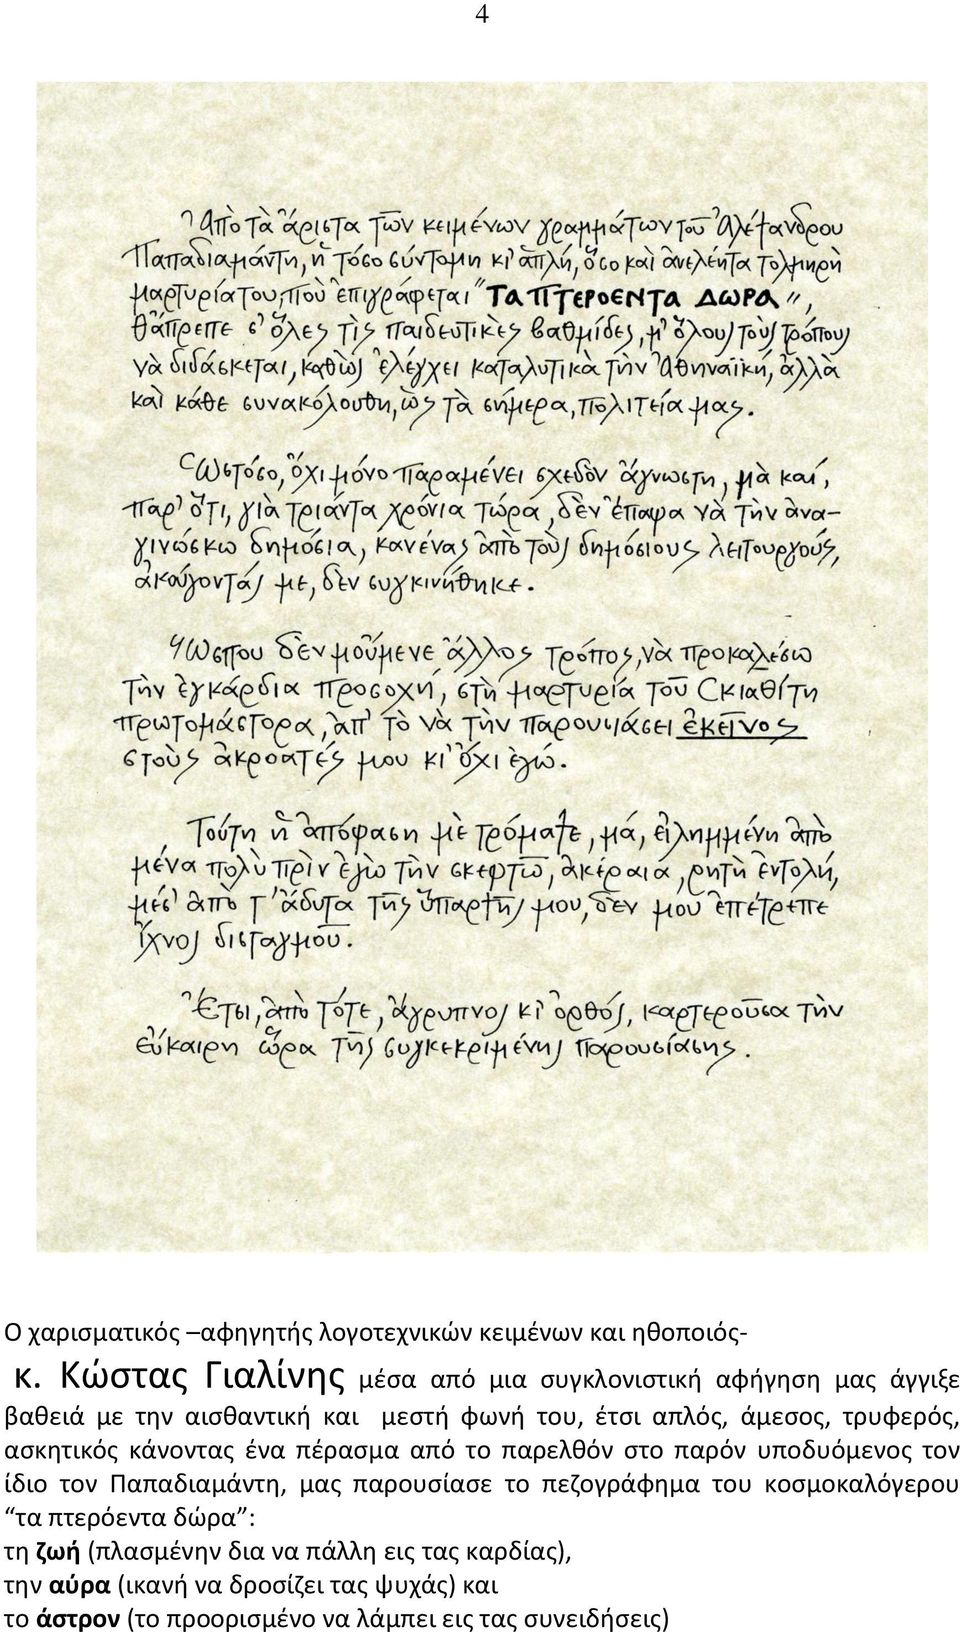 4
Ἀπὸ τὰ ἄριστα τῶν κειμένων γραμμάτων τοῦ Ἀλέξανδρου
Παπαδιαμάντη, ἡ τόσο σύντομη κι' ἁπλή, ὅσο καὶ ἀνελέητα τολμηρὴ
μαρτυρία του, ποὺ ἐπιγράφεται "ΤΑ ΠΤΕΡΟΕΝΤΑ ΔΩΡΑ",
θἄπρεπε σ' ὅλες τὶς παιδευτικὲς βαθμίδες, μ' ὅλους τοὺς τρόπους
νὰ διδάσκεται, καθὼς ἐλέγχει καταλυτικὰ τὴν Ἀθηναϊκή, ἀλλὰ
καὶ κάθε συνακόλουθη, ὣς τὰ σήμερα, πολιτεία μας.
Ὡστόσο, ὄχι μόνο παραμένει σχεδὸν ἄγνωστη, μὰ καί,
παρ' ὅτι, γιὰ τριάντα χρόνια τώρα, δὲν ἔπαψα νὰ τὴν ἀνα-
γινώσκω δημόσια, κανένας ἀπὸ τοὺς δημόσιους λειτουργούς,
ἀκούγοντάς με, δὲν συγκινήθηκε.
Ὥσπου δὲν μοὔμενε ἄλλος τρόπος, νὰ προκαλέσω
τὴν ἐγκάρδια προσοχή, στὴ μαρτυρία τοῦ Σκιαθίτη
πρωτομάστορα, ἀπ' τὸ νὰ τὴν παρουσιάσει ἐκεῖνος
στοὺς ἀκροατές μου κι' ὄχι ἐγώ.
Τούτη ἡ ἀπόφαση μὲ τρόμαξε, μά, εἰλημμένη ἀπὸ
μένα πολὺ πρὶν ἐγὼ τὴν σκεφτῶ, ἀκέραια, ρητὴ ἐντολή,
μέσ' ἀπὸ τ' ἄδυτα τῆς ὕπαρξής μου, δὲν μοῦ ἐπέτρεπε
ἴχνος δισταγμοῦ.
Ἔτσι, ἀπὸ τότε, ἄγρυπνος κι' ὀρθός, καρτεροῦσα τὴν
εὔκαιρη ὥρα τῆς συγκεκριμένης παρουσίασης.
Ο χαρισματικός –αφηγητής λογοτεχνικών κειμένων και ηθοποιός-
κ. Κώστας Γιαλίνης μέσα από μια συγκλονιστική αφήγηση μας άγγιξε
βαθειά με την αισθαντική και μεστή φωνή του, έτσι απλός, άμεσος, τρυφερός,
ασκητικός κάνοντας ένα πέρασμα από το παρελθόν στο παρόν υποδυόμενος τον
ίδιο τον Παπαδιαμάντη, μας παρουσίασε το πεζογράφημα του κοσμοκαλόγερου
“τα πτερόεντα δώρα”:
τη ζωή (πλασμένην δια να πάλλη εις τας καρδίας),
την αύρα (ικανή να δροσίζει τας ψυχάς) και
το άστρον (το προορισμένο να λάμπει εις τας συνειδήσεις)